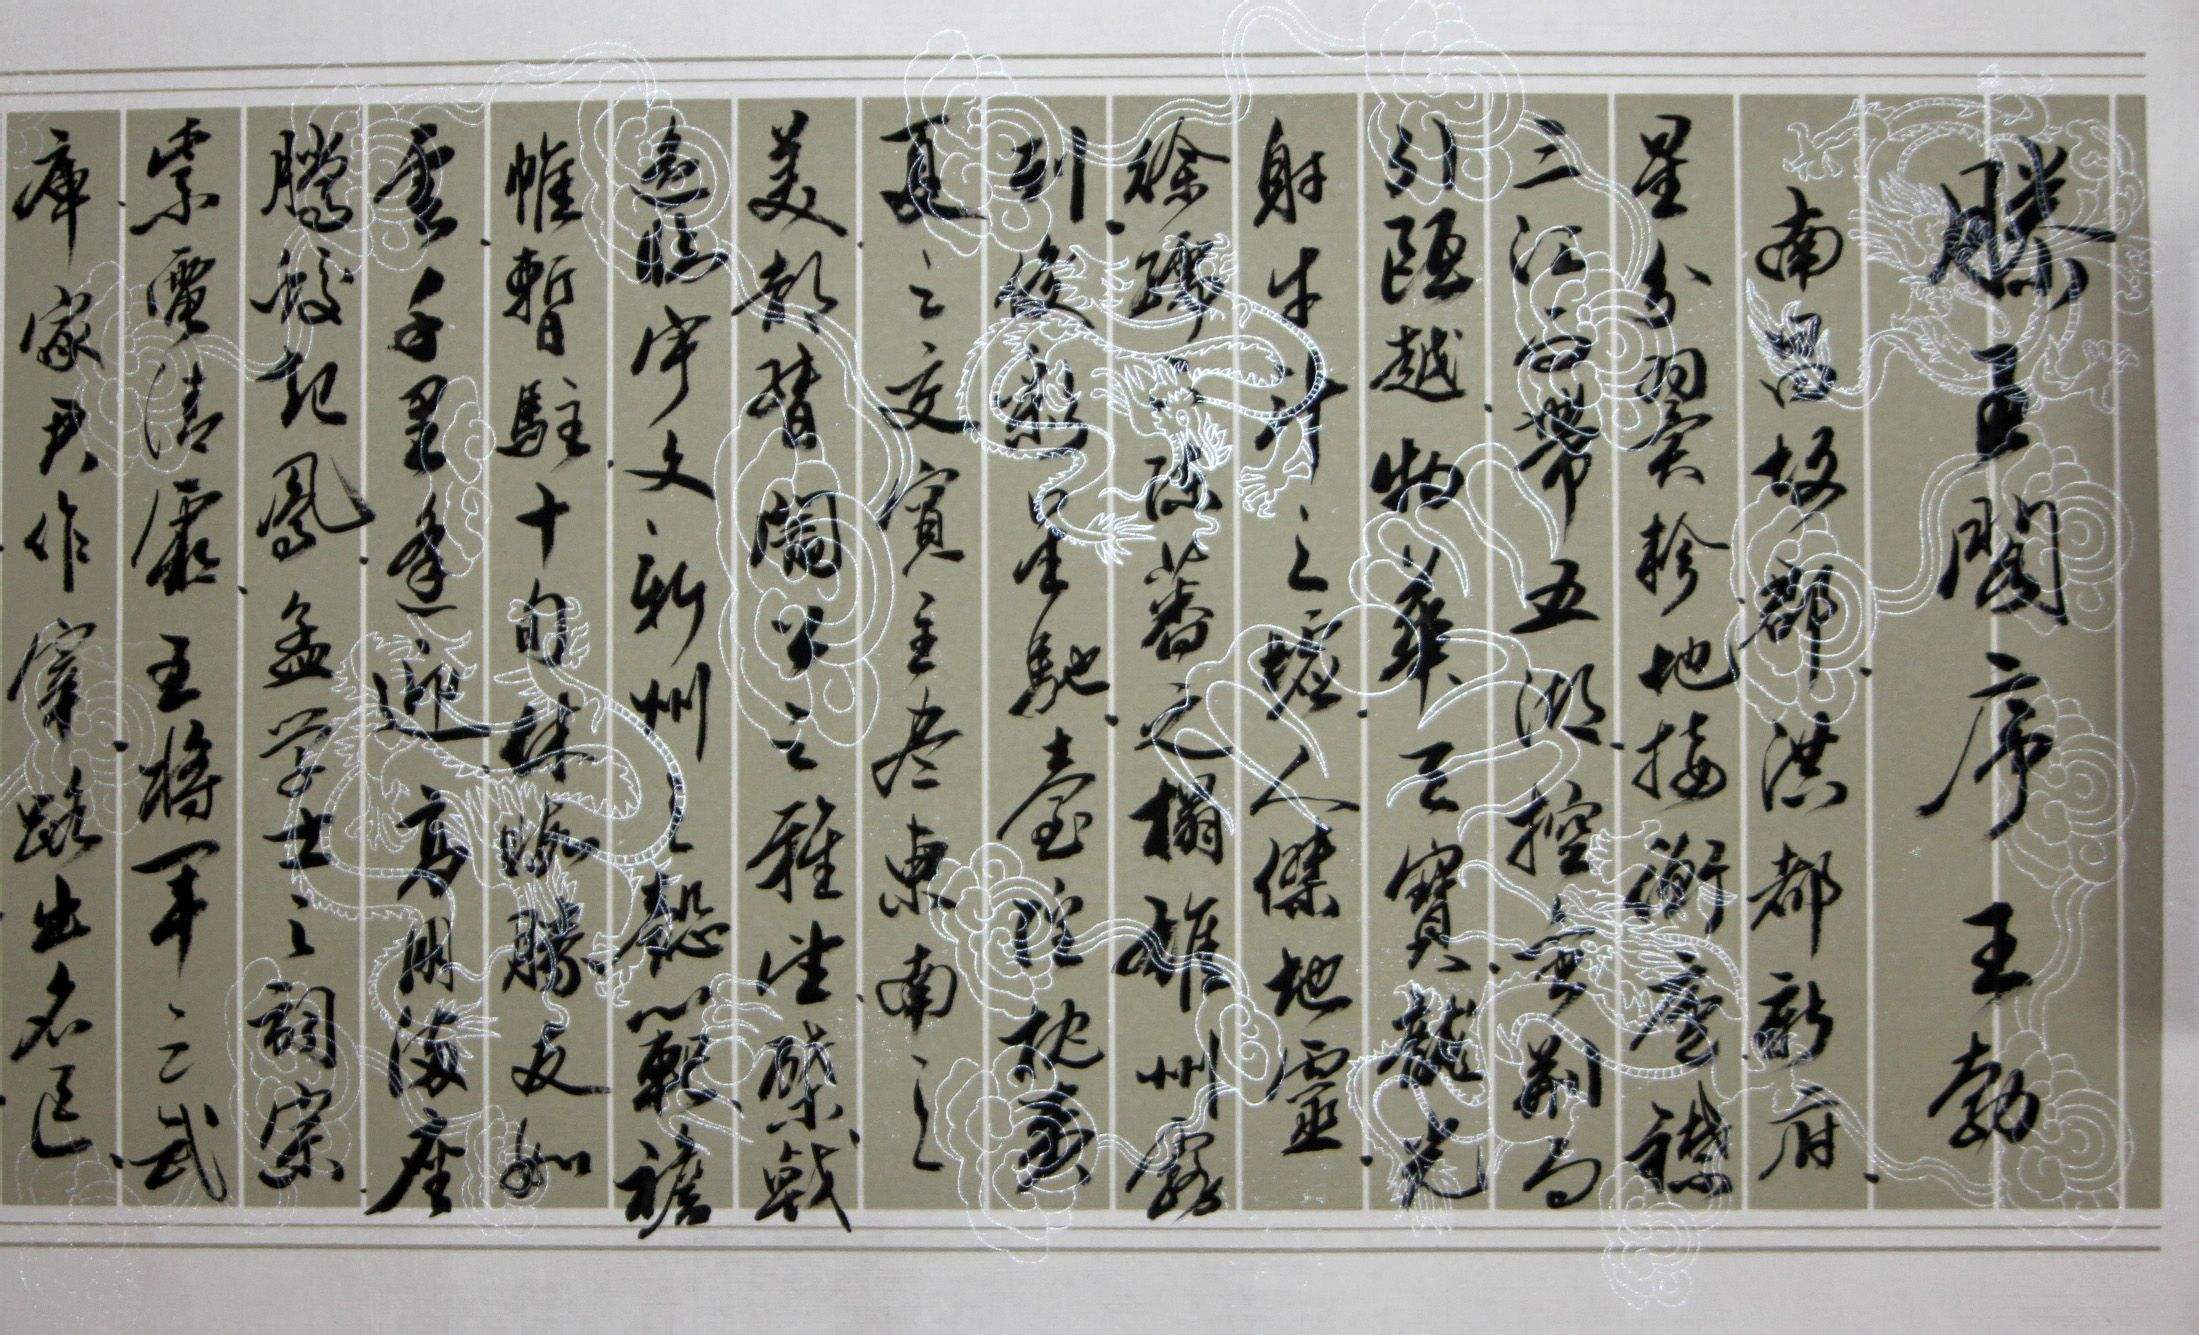 滕王閣序 王勃
南昌故郡洪都新府
星分翼軫地接衡廬襟
三江而帶五湖控蛮荊而
引甌越物華天寶龍光
射牛斗之墟人傑地靈
徐孺下陳蕃之榻雄州霧
列俊彩星馳臺隍枕夷
夏之交賓主尽東南之
美都督閻公之雅望棨戟
遙臨宇文新州之懿範襜
帷暫駐十旬休暇勝友如
雲千里逢迎高朋滿座
騰蛟起鳳孟学士之詞宗
紫電清霜王將軍之武
庫家君作宰路出名區